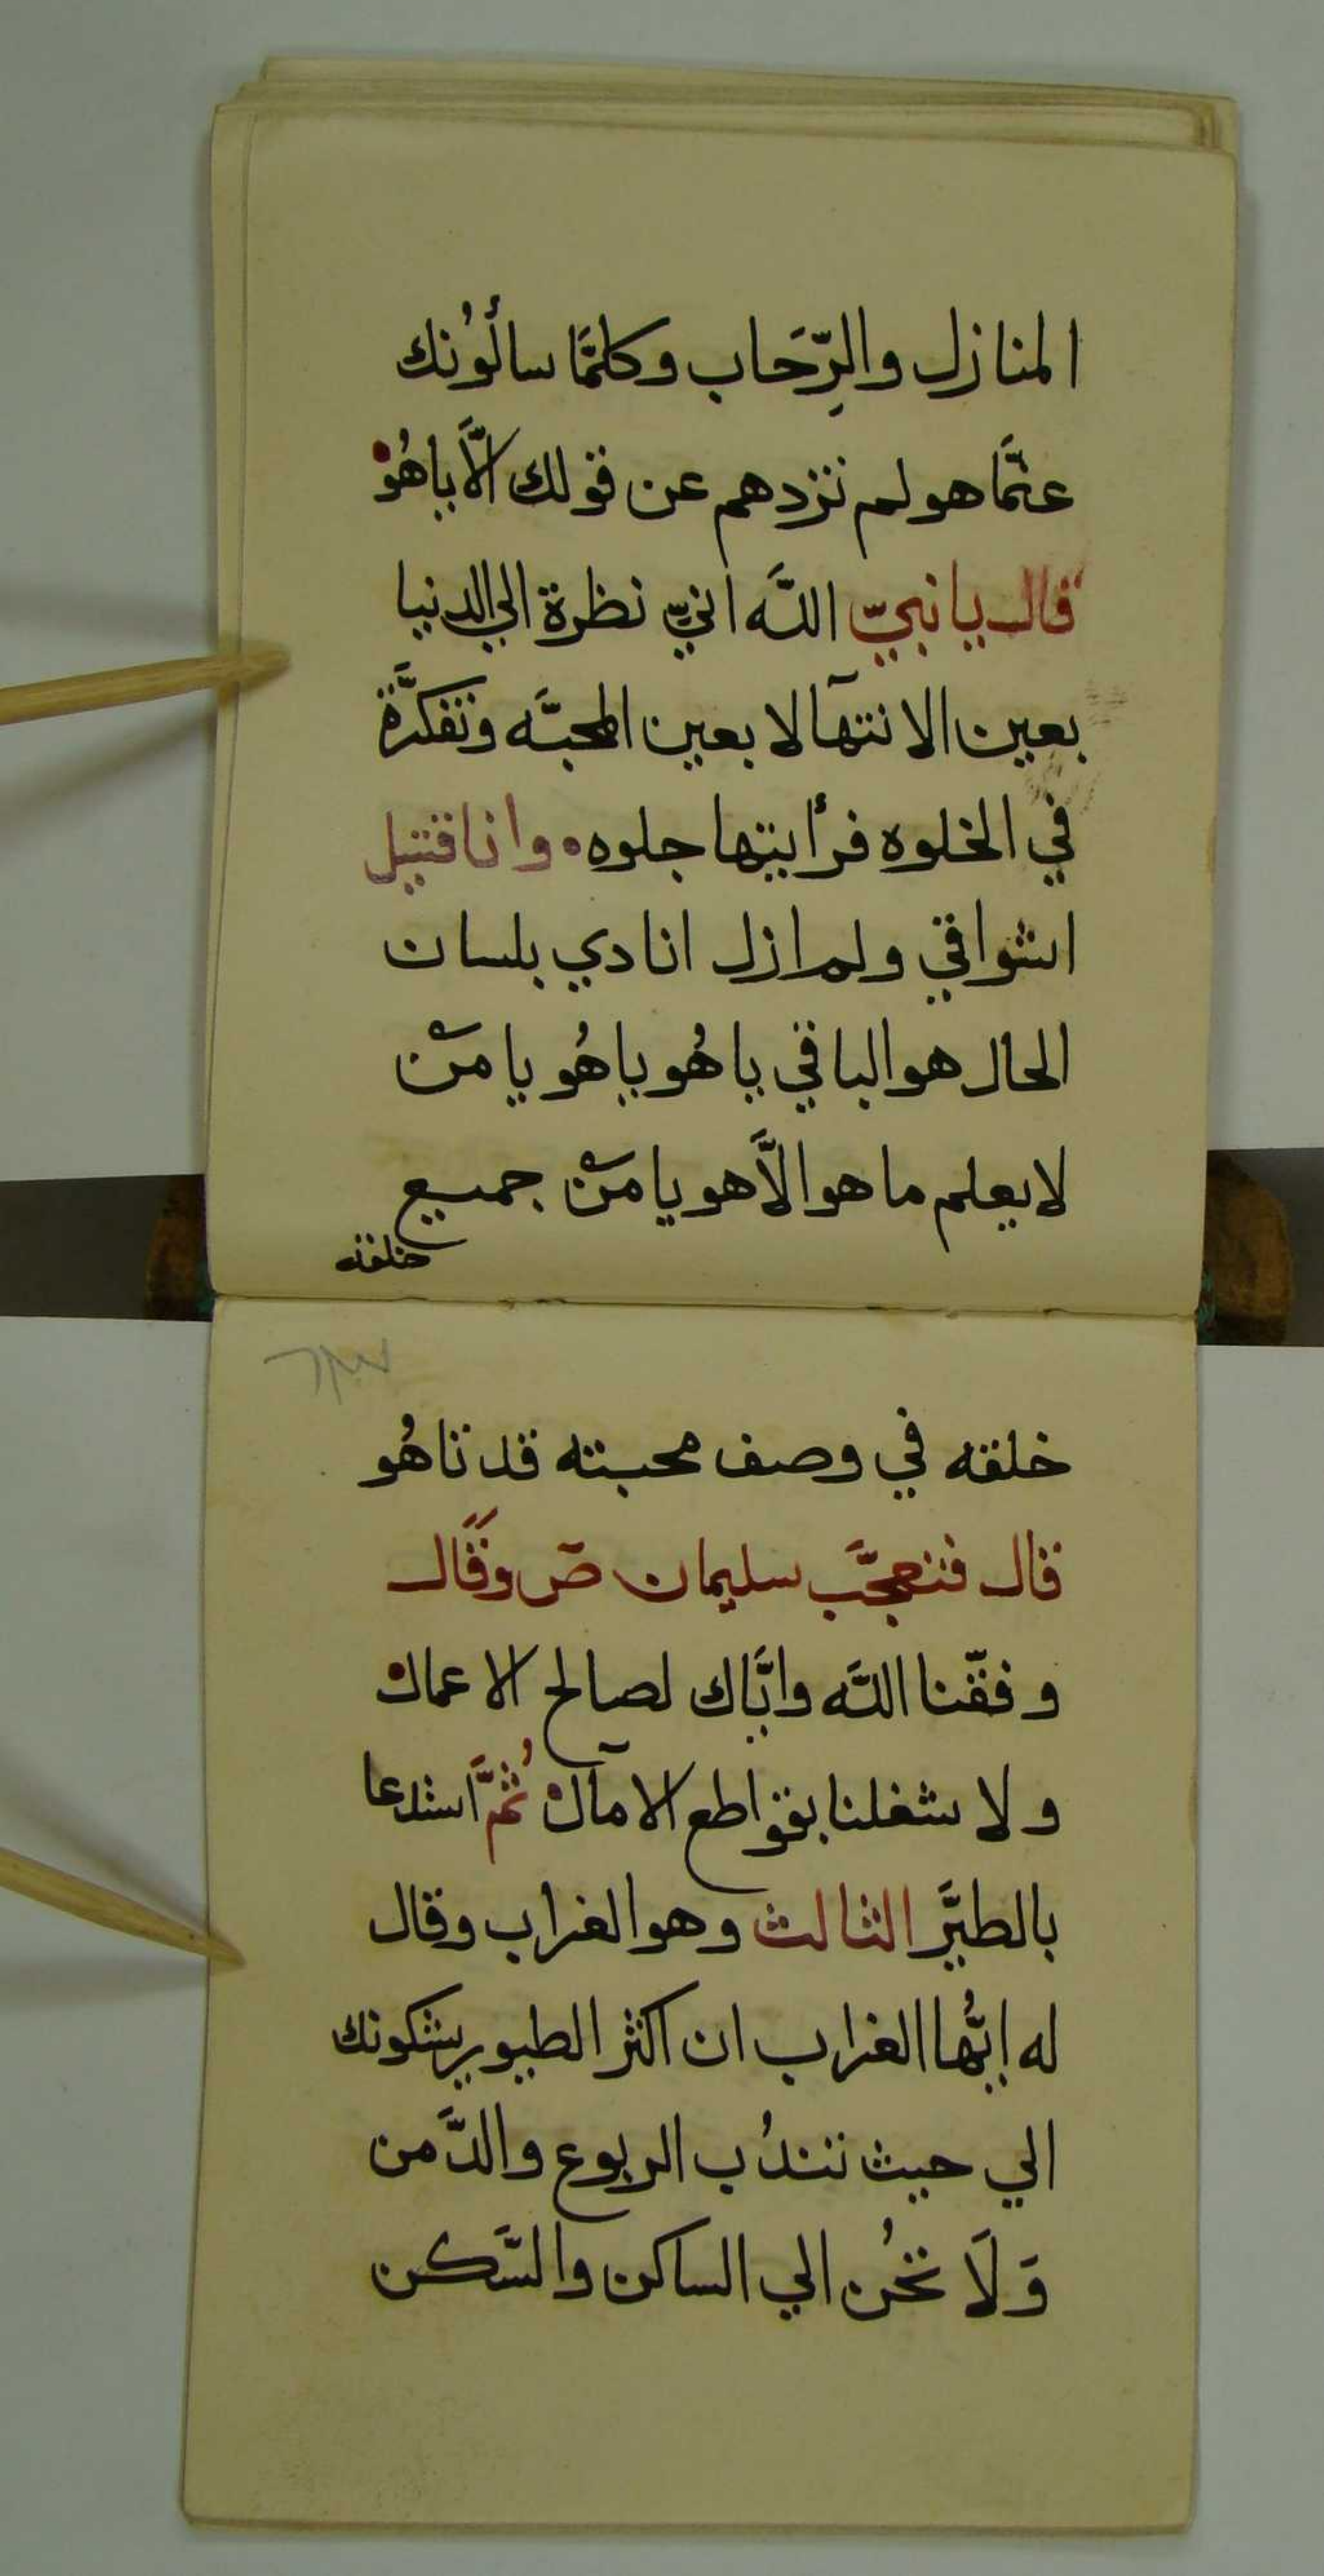 المنازل والرِّحَاب وكلمَّا سألوُنك
عمَّا هو لم تزدهم عن قولك الَّا ياهُو
قال يا نبيّ اللَّه انيّ نظرة الي الدنيا
بعين الانتهآ لا بعين المحبَّه وتفكرَّة
في الخلوه فرأيتها جلوه وانا قتيل
اشواقي ولم ازل انادي بلسان
الحال هو الباقي يا هُو ياهُو يا مَنْ
لا يعلم ما هو الَّا هو يا مَنْ جميع
خلقته
خلقه في وصف محبته قد تاهُو
قال فتعجَّب سليمان صَ وقَال
وفقّنا اللَّه وايَّاك لصالح الاعمال
ولا شغلنا بقواطع الآمال ثُمَّ استدعا
بالطيَّر الثالث وهو الغراب وقال
له ايُّها الغراب ان اكثر الطيور يشكونك
الي حيث تندُب الربوع والدَّمن
وَلَا تحُن الي الساكن والسَّكن